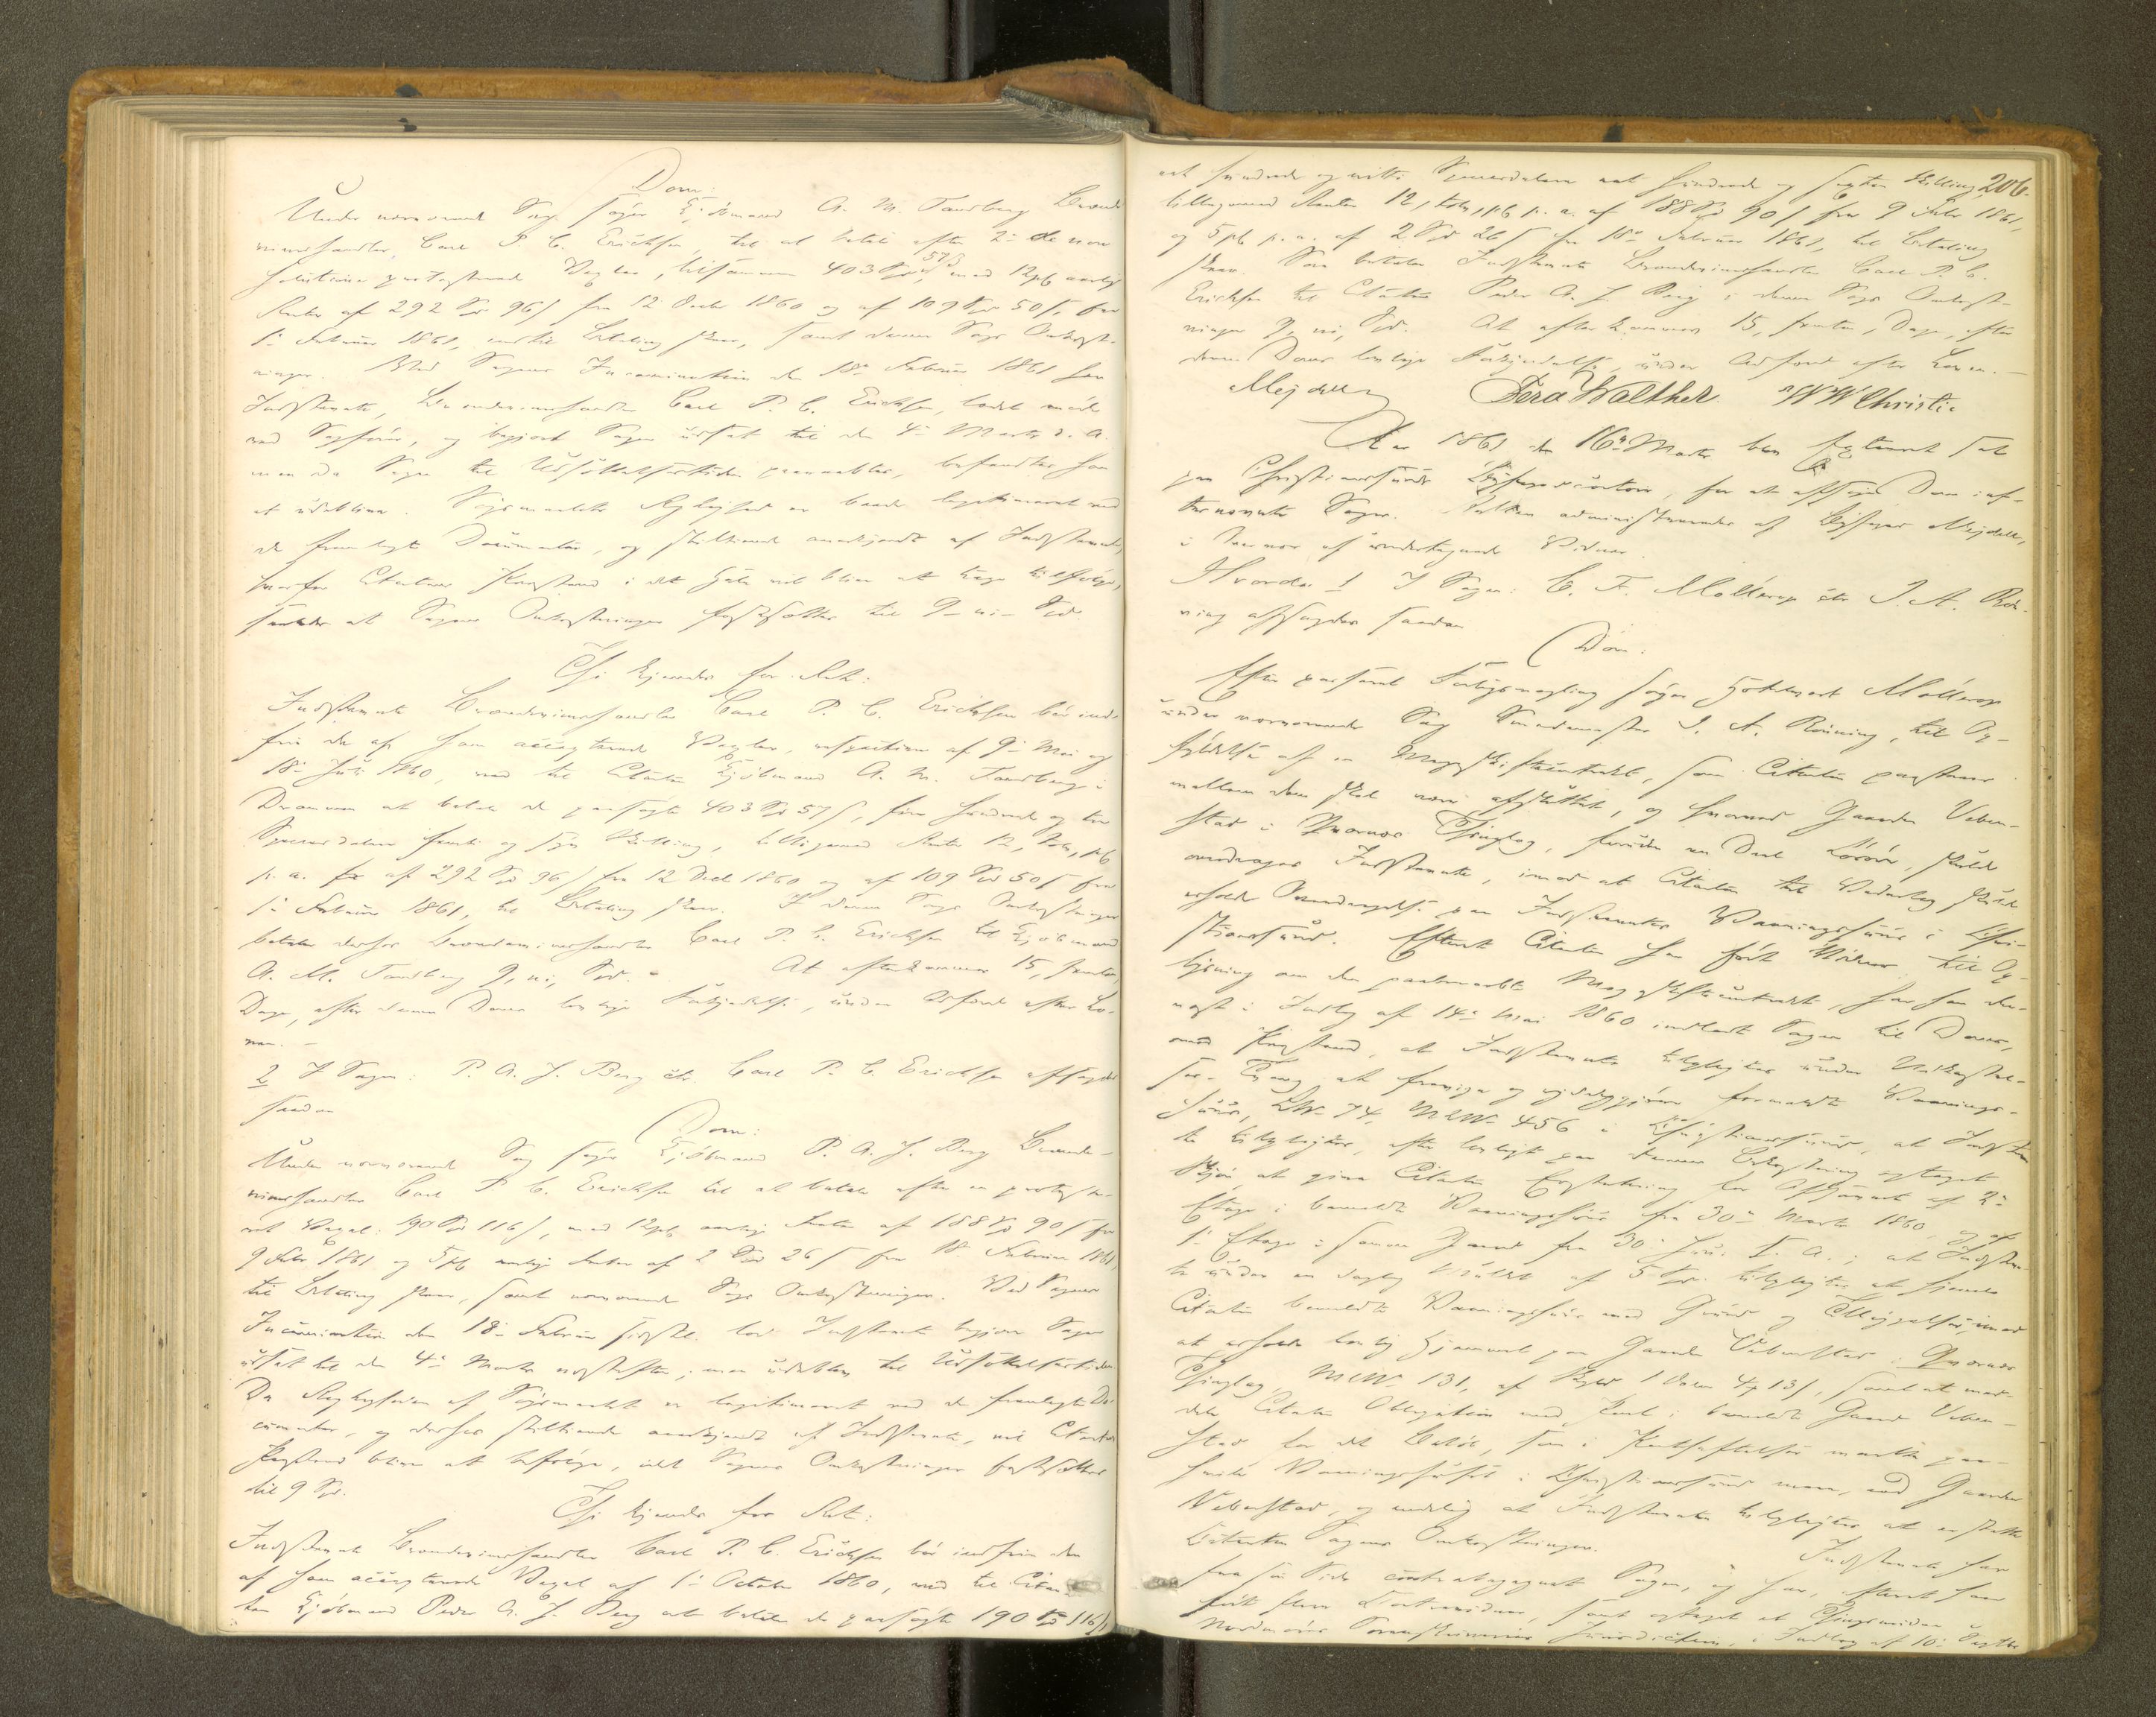 Dom:
Under nærværende Sag søger Kjøbmand A. M. Tandberg Brænde-
viinshandler Carl P. C. Erichsen til at betale efter 2de non
solutione protesterede Vexler, tilsammen 403 Spd 57 s, med 12 pCt aarlige
Renter af 292 Spd 96 s fra 12 Decbr 1860 og af 109 Spd 50 s, fra
1ste Februar 1861, indtil Betaling skeer, samt denne Sags Omkost-
ninger. Ved Sagens Incamination den 18de Februar 1861 har
Indstevnte, Brændeviinshandler Carl P. C. Erichsen, ladet møde
ved Sagfører, og begjært Sagen udsat til den 4de Marts d. A.
men da Sagen til Udsættelsestiden paaraabtes, befandtes han
at udeblive. Søgsmaalets Rigtighed er baade legitimeret ved
de fremlagte Documenter, og stiltiende anerkjendt af Indstevnte,
hvorfor Citantens Paastand i det Hele vil blive at tage tilfølge,
saaledes at Sagens Omkostninger fastsættes til 9 - ni - Spd.
Thi kjendes for Ret:
Indstevnte Brændeviinshandler Carl P. C. Erichsen bør ind-
frie de af ham accepterede Vexler, respective af 9de Mai og
18de Juli 1860, med til Citanten Kjøbmand A. M. Tandberg i
Drammen at betale de paasøgte 403 Spd 57 s, fire hundrede og tre
Speciedaler femti og syv Skilling, tilligemed Renter 12, tolv, pCt
p. a. af 292 Spd 96 s fra 12 Decbr 1860 og af 109 Spd 50 s fra
1ste Februar 1861, til Betaling skeer. I denne Sags Omkostninger
betaler derhos Brændeviinshandler Carl P. C. Erichsen til Kjøbmand
A. M. Tandberg 9, ni, Spd. - At efterkommes 15, femten,
Dage, efter denne Doms lovlige Forkyndelse, under Adfærd efter Lo-
ven. -
2 I Sagen: P. A. J. Berg ctr. Carl P. C. Erichsen afsagdes
saadan
Dom:
Under nærværende Sag søger Kjøbmand P. A. J. Berg Brænde-
viinshandler Carl P. C. Erichsen til at betale efter en proteste-
ret Vexel 190 Spd 116 s, med 12 pCt aarlige Renter af 188 Spd 90 s fra
9 Febr 1861 og 5 pCt aarlige Renter af 2 Spd 26 s fra 18 Februar 1861,
til Betaling skeer, samt nærværende Sags Omkostninger. Ved Sagens
Incamination den 18de Februar sidstl. lod Indstevnte begjære Sagen
udsat til den 4de Marts næstefter, men udeblev til Udsættelsestiden
Da Rigtigheden af Søgsmaalet er legitimeret ved de fremlagte Do-
cumenter, og derhos stiltiende anerkjendt af Indstevnte, vil Citantens
Paastand blive at tilfølge, idet Sagens Omkostninger fastsættes
til 9 Spd.
Thi kjendes for Ret:
Indstevnte Brændeviinshandler Carl P. C. Erichsen bør indfrie den
af ham accepterede Vexel af 1ste October 1860, med til Citan-
ten Kjøbmand Peder A. J. Berg at betale de paasøgte 190 Spd 116 s,
206.
et hundrede og nitti Speciedaler et hundrede og sexten Skilling,
tilligemed Renter 12, tolv, pCt p. a. af 188 Spd 90 s fra 9 Febr 1861,
og 5 pCt p. a. af 2 Spd 26 s fra 18de Februar 1861, til Betaling
skeer. Saa betaler Indstevnte Brændeviinshandler Carl P. C.
Erichsen til Citanten Peder A. J. Berg i denne Sags Omkost-
ninger 9, ni, Spd. At efterkommes 15, femten, Dage, efter
denne Doms lovlige Forkyndelse, under Adfærd efter Loven. -
Mejdell Ferd Walther W W Christie
Aar 1861 den 16de Marts blev Extraret sat
paa Christianssunds Byfogedcontoir, for at afsige Dom i ef-
ternævnte Sager. Retten administreredes af Byfoged Mejdell,
i Nærvær af undertegnede Vidner.
Hvorda 1 I Sagen: C. F. Mollerop ctr J. A. Røn-
ning afsagdes saadan
Dom:
Efter passeret Forligsmægling søger Mollerop
under nærværende Sag J. A. Rønning, til Op-
fyldelse af en Mageskiftecontract, som Citanten paastaaer
mellem dem skal være afsluttet, og hvorved Gaarden Veben-
stad i Qvernes Thinglag, foruden en Deel Løsøre, skulde
overdrages Indstevnte, imod at Citanten til Vederlag skulde
erholde Overdragelse paa Indstevntes Vaaningshuus i Chri-
stianssund. Efterat Citanten har ført Vidner til Op-
lysning om den paaberaabte Mageskiftecontract, har han der-
næst i Indlæg af 14de Mai 1860 indladt Sagen til Doms,
med Paastand, at Indstevnte tilpligtes under Udkastel-
ses- Tvang at fravige og ryddeliggjøre formeldte Vaanings-
huus, LNo 74, MNo 456 i Christianssund, at Indstevn-
te tilpligtes, efter lovligt paa hennes Bekostning optaget
Skjøn at give Citanten Erstatning for Afsavnet af 2den
Etage i bemeldte Vaaningshuus fra 30te Marts 1860, og af
1ste Etage i samme Gaard fra 30 Juni s. A.; at Indstevn-
te under en daglig Mulct af 5 Spd. tilpligtes at hjemle
Citanten bemeldte Vaaningshuus med Grund og Tilliggelser, imod
at erholde lovlig Hjemmel paa Gaarden Vebenstad i Qvernes
Thinglag, MNo 131, af Skyld 1 Daler 4 ort 13 s, samt at med-
dele Citanten Obligation med Pant i bemeldte Gaard Veben-
stad for det Beløb, som i Kjøbekontrakten paa-
hvilte Vaaningshuset i Christianssund mere, end Gaarden
Vebenstad, og endelig at Indstevnte tilpligtes at erstatte
Citanten Sagens Omkostninger. Indstevnte har
fra sin Side contrasøgt Sagen, og har, efterat have
ført flere Contravidner, samt optaget et Thingsvidne
Nordmøre Sorenskriveries Jurisdiction, i Indlæg af 10de Septbr